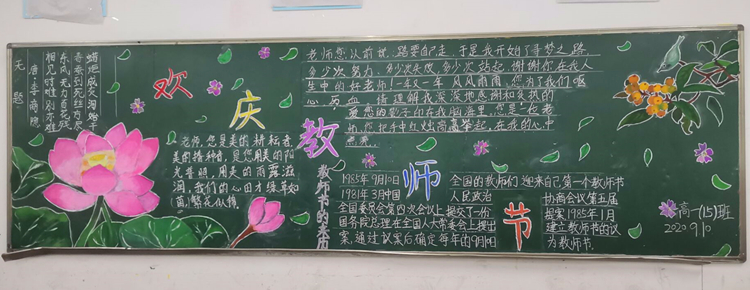 无题
唐·李商隐
相见时难别亦难
东风无力百花残
春蚕到死丝方尽
蜡炬成灰泪始干
欢庆教师节
老师，您是美的耕耘者，
美的播种者，是您用美的阳
光普照，用美的雨露滋
润，我们的心田才绿草如
茵，繁花似锦。
老师您以前说，路要自己走，于是我开始了寻梦之路，
多少次努力，多少次失败，多少次站起，谢谢你在我人
生中的好老师！一年又一年，风风雨雨，您为了我们呕
心
血，请理解我深深地感谢和炙热的
爱，您的影子印在我脑海里，您是一位老
师，
把手中红烛高高举起，在我的心中
教师节的来历
1985年9月10日
1981年3月中国
全国委员会第四次会议上提交了一份
国务院总理在全国人大常委会上提出
案，通过议案后确定每年的9月10日
全国的教师们迎来自己第一个教师节
人民政治
协商会议第五届
提案 1985年1月
建立教师节的议
为教师节.
高一(15)班
2020 9.10